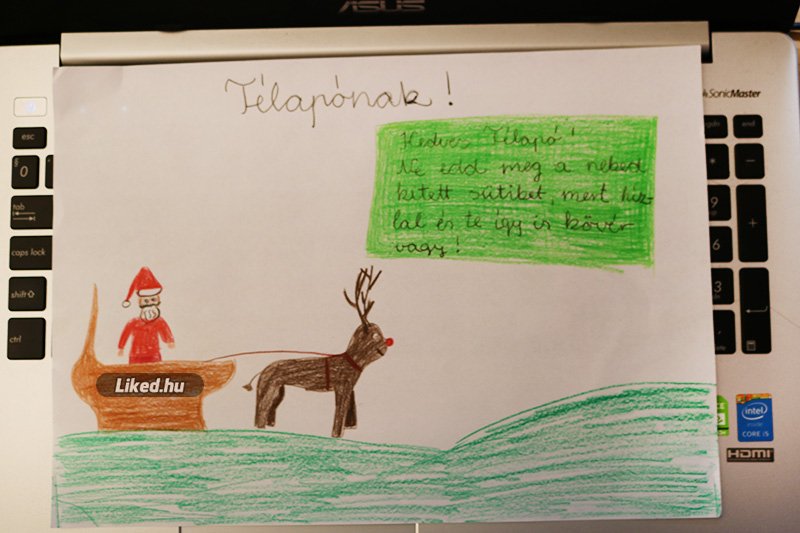 ASUS
SonicMaster
Télapónak!
Kedves Télapó!
Ne edd meg a neked
kitett sütiket, mert híz-
lal és te így is kövér
vagy!
esc
0
tab
caps lock
shift
ctrl
end
9
6
3
Liked.hu
intel
inside
CORE i5
HDMI